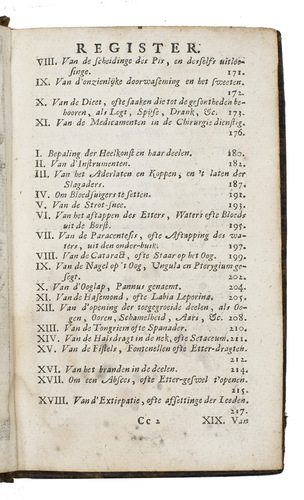 REGISTER.
VIII. Van de scheidinge des Pis, en desselfs uitloo-
singe. 171.
IX. Van d'onzienlijke doorwaseming en het sweeten.
172.
X. Van de Dieet, ofte saaken die tot de gesontheden be-
hooren, als Logt, Spijse, Drank, &c. 173.
XI. Van de Medicamenten in de Chirurgie dienstig.
176.
I. Bepaling der Heelkonst en haar deelen. 180.
II. Van d'Instrumenten. 182.
III. Van het Aderlaten en Koppen, en 't laten der
Slagaders. 187.
IV. Om Bloedsuigers te setten. 191.
V. Van de Strot-snee. 193.
VI. Van het aftappen des Etters, Waters ofte Bloeds
uit de Borst. 195.
VII. Van de Paracentesis, ofte Aftapping des wa-
ters, uit den onder-buik. 197.
VIII. Van de Cataract, ofte Staar op het Oog. 199.
IX. Van de Nagel op 't Oog, Ungula en Pterygium ge-
segt. 202.
X. Van d'Ooglap, Pannus genaemt. 204.
XI. Van de Hasemond, ofte Labia Leporina. 205.
XII. Van d'opening der toegegroeide deelen, als Oo-
gen, Ooren, Schamelheid, Aars, &c. 208.
XIII. Van de Tongriem ofte Spanader. 210.
XIV. Van de Halsdragt in de nek, ofte Setaceum. 211.
XV. Van de Fistels, Fontenellen ofte Etter-dragten.
212.
XVI. Van het branden in de deelen. 214.
XVII. Om een Absces, ofte Etter-geswel t'openen.
215.
XVIII. Van d'Extirpatie, ofte afsettinge der Leeden.
217.
Cc 2 XIX. Van